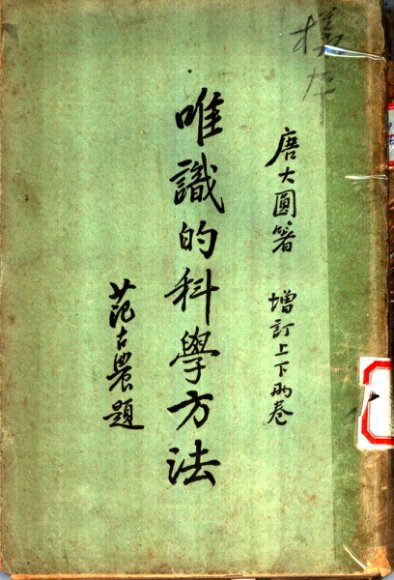 樣本
唐大圓箸 增訂上下兩卷
唯識的科學方法
范古農題